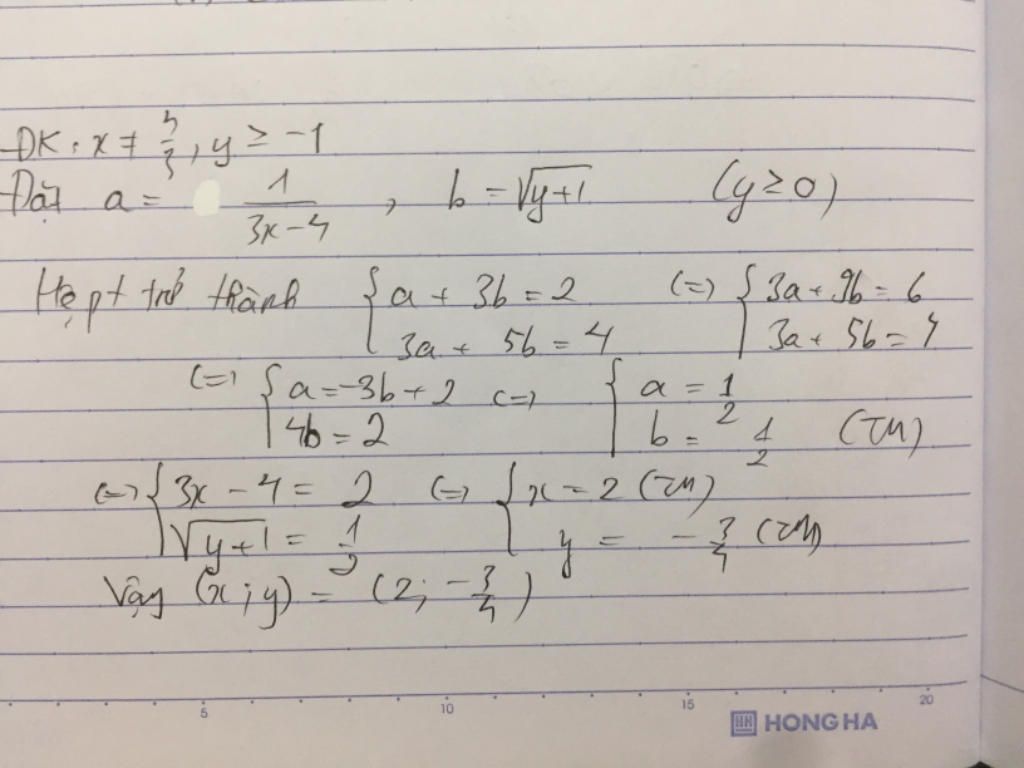 ĐK: x ≠ 4/3, y ≥ -1
Đặt a = 1/(3x-4), b = √(y+1) (y ≥ 0)
Hệ pt trở thành { a + 3b = 2 ; 3a + 5b = 4 (=) { 3a + 9b = 6 ; 3a + 5b = 4
(=) { a = -3b + 2 ; 4b = 2 (=) { a = 1/2 ; b = 1/2 (TM)
(=) { 3x - 4 = 2 ; √(y+1) = 1/2 (=) { x = 2 (TM) ; y = -3/4 (TM)
Vậy (x; y) = (2; -3/4)
5 10 15 20
HONG HA